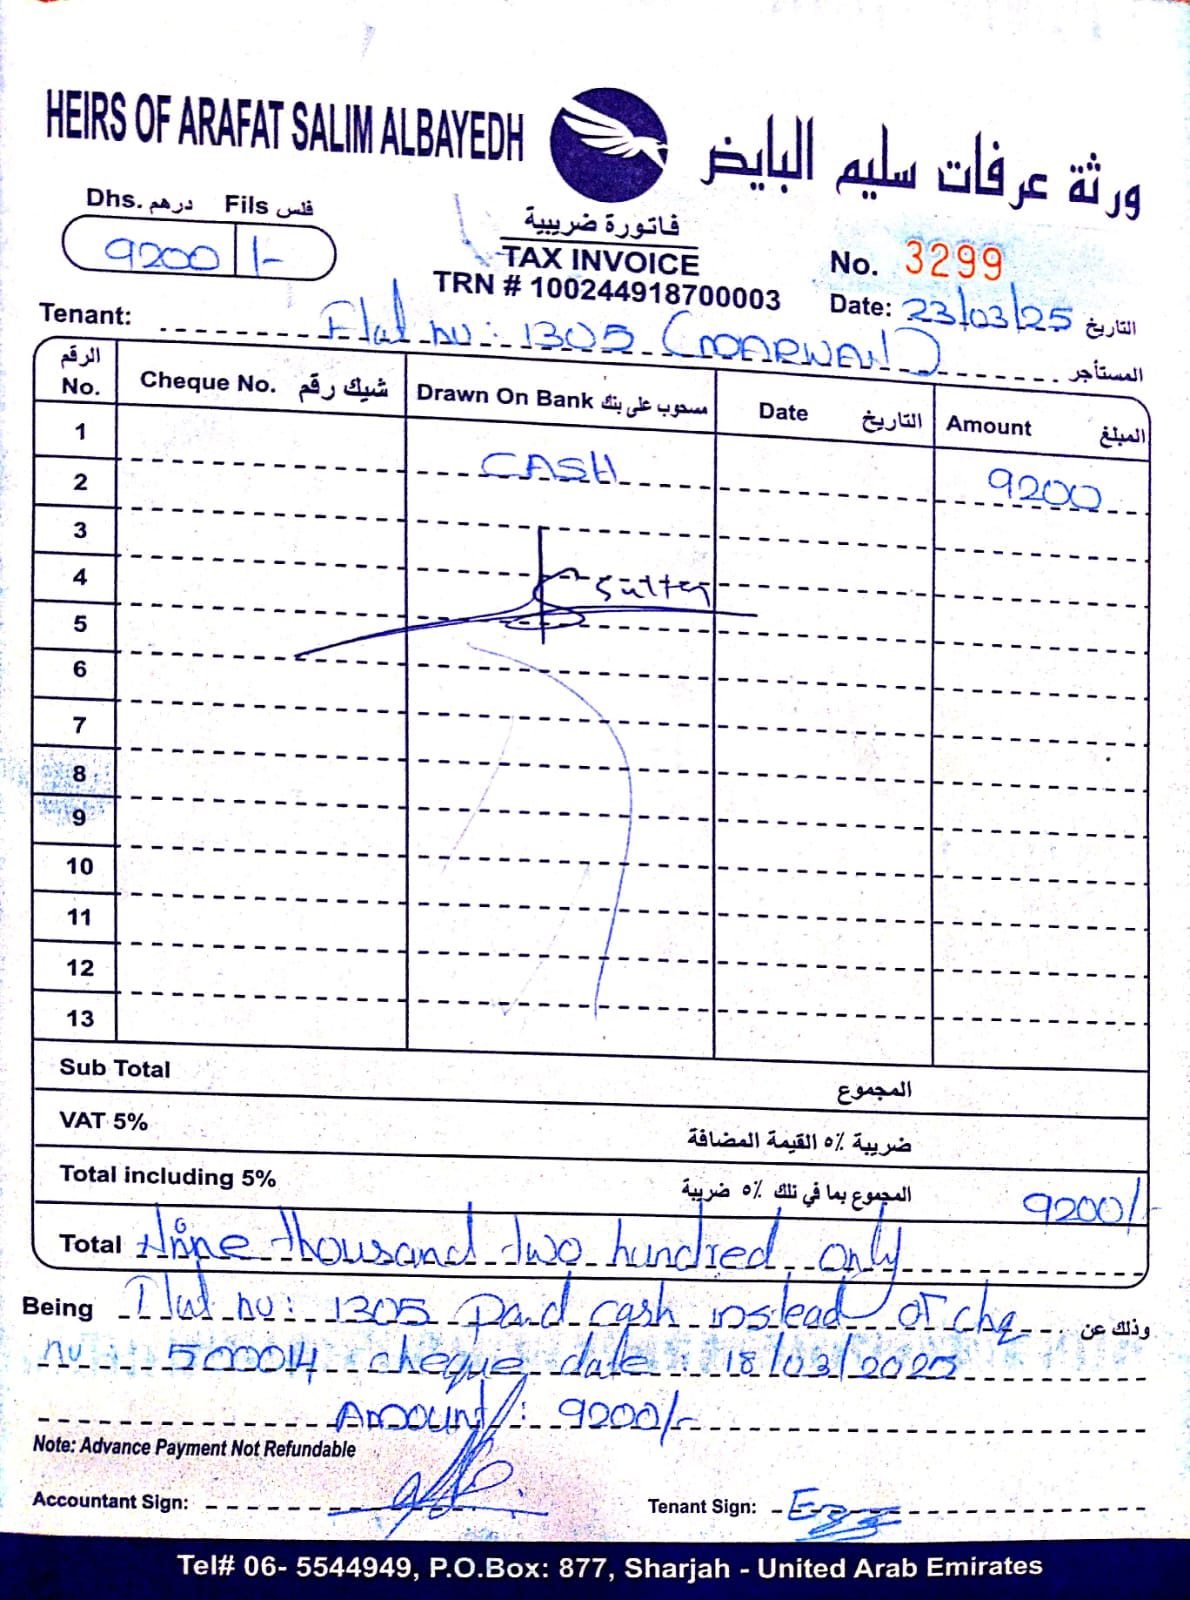 HEIRS OF ARAFAT SALIM ALBAYEDH
ورثة عرفات سليم البايض
Dhs. درهم Fils فلس
9200 /-
فاتورة ضريبية
TAX INVOICE
TRN # 100244918700003
No. 3299
Date: 23/03/25 التاريخ
Tenant: Flat no: 1305 (MARWAN) المستأجر
الرقم No. Cheque No. شيك رقم Drawn On Bank مسحوب على بنك Date التاريخ Amount المبلغ
1
2 CASH 9200
3
4
5
6
7
8
9
10
11
12
13
Sub Total المجموع
VAT 5% ضريبة ٥٪ القيمة المضافة
Total including 5% المجموع بما في تلك ٥٪ ضريبة 9200/-
Total Nine thousand two hundred only
Being Flat no: 1305 Paid cash instead of chq وذلك عن
no: 500014 cheque date: 18/03/2025
Amount: 9200/-
Note: Advance Payment Not Refundable
Accountant Sign:
Tenant Sign:
Tel# 06- 5544949, P.O.Box: 877, Sharjah - United Arab Emirates